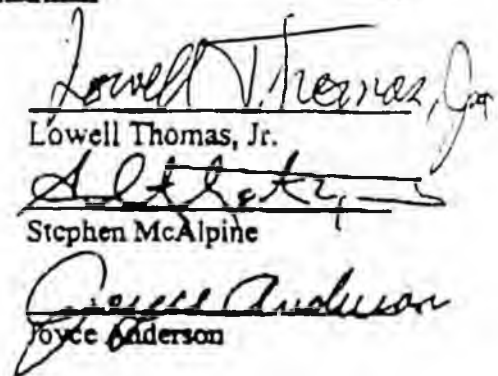 Lowell Thomas, Jr.
Lowell Thomas, Jr.
Stephen McAlpine
Joyce Anderson
Joyce Anderson